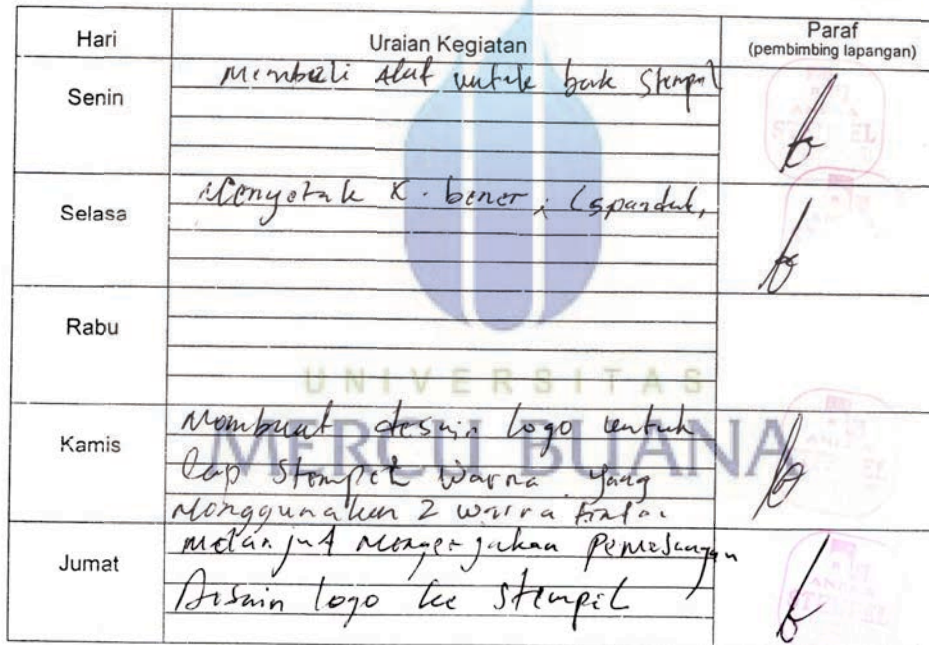 Hari Uraian Kegiatan Paraf
(pembimbing lapangan)
Senin
Membeli Alat untuk buk Stempel
Selasa
Menyetak X. bener, (spanduk,
Rabu
UNIVERSITAS
MERCU BUANA
Kamis
Membuat desain logo untuk
Cap Stempel warna yang
Menggunakan 2 warna tinta.
Jumat
melanjut Mengerjakan Pemasangan
Desain logo ke Stempel